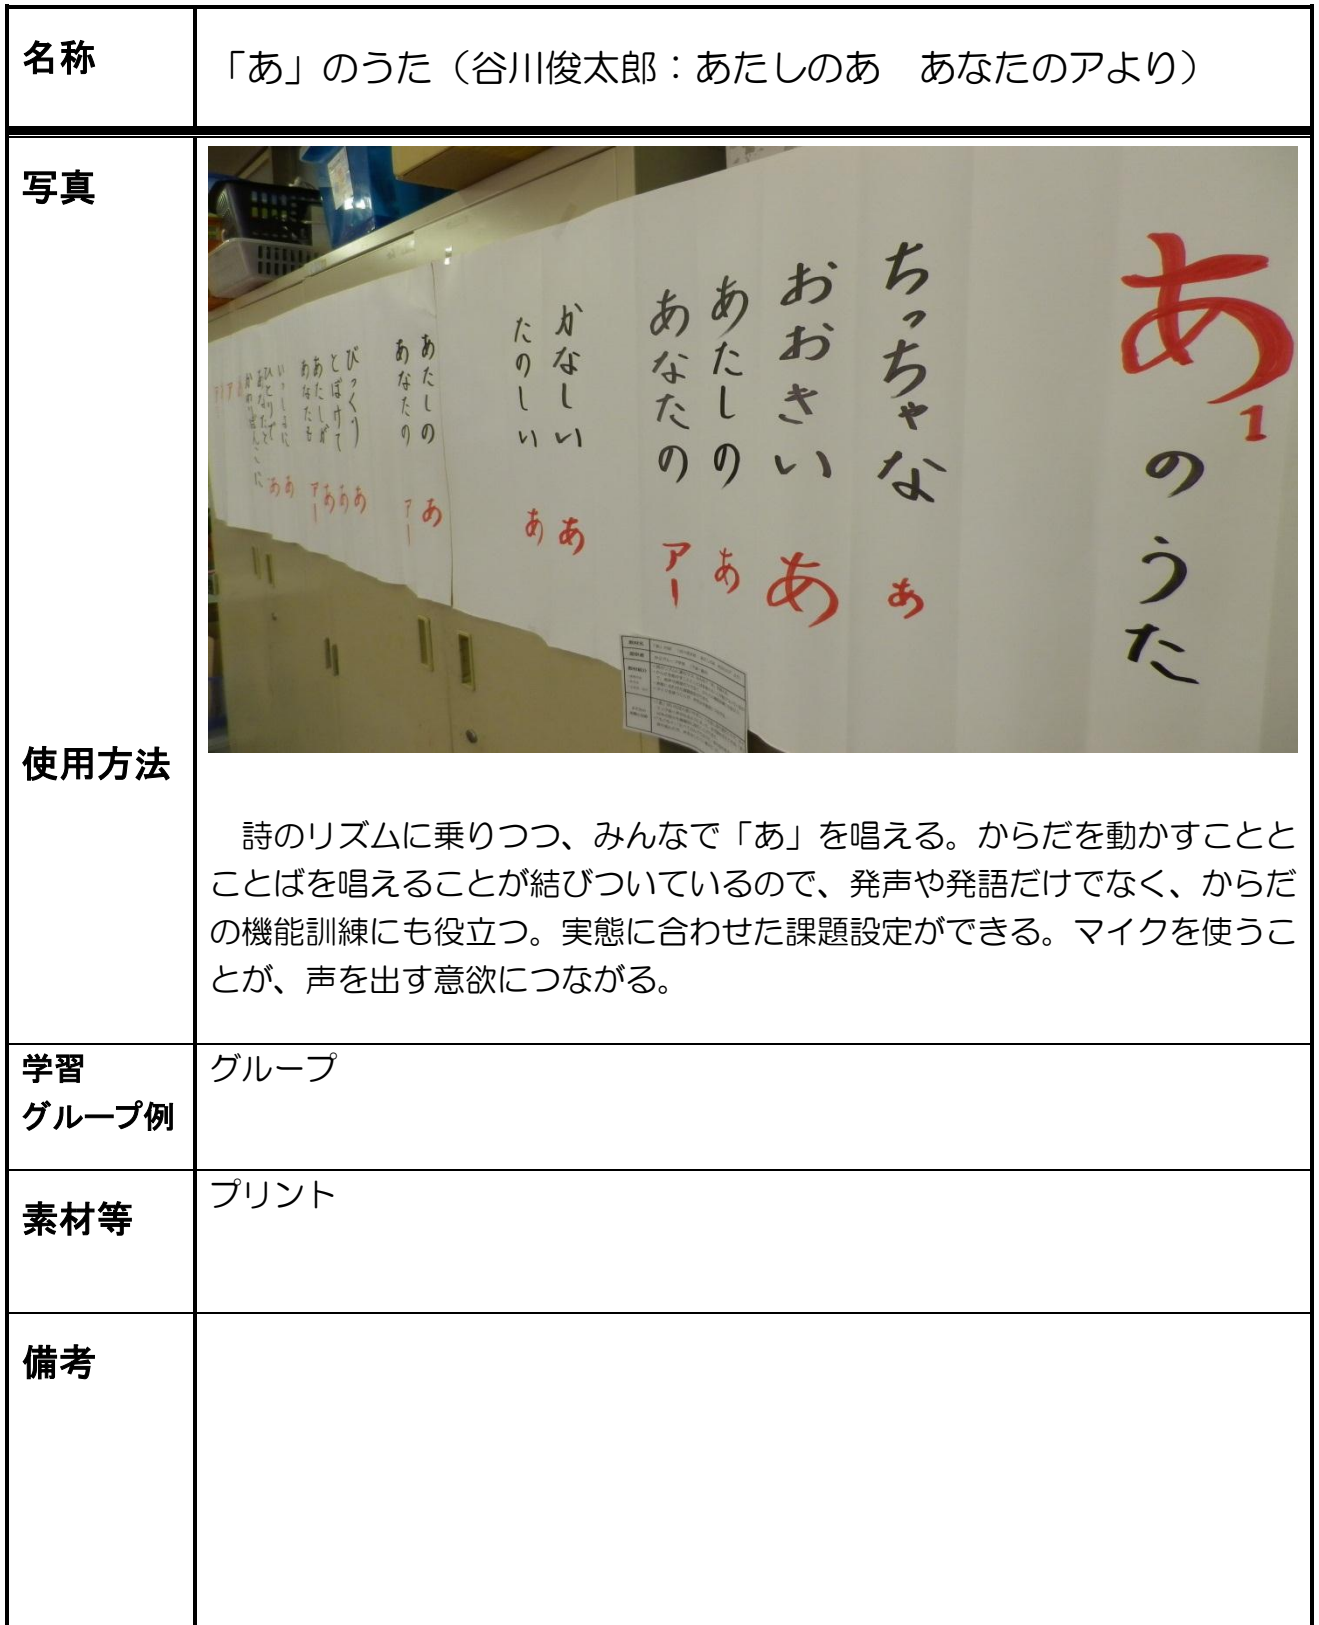 名称
「あ」のうた（谷川俊太郎：あたしのあ　あなたのアより）
写真
あ1のうた
ちっちゃな　あ
おおきい　あ
あたしの　あ
あなたの　アー
かなしい　あ
たのしい　あ
あたしの　あ
あなたの　アー
びっくり　あ
とぼけて　あ
あたしが　あ
あなたも　アー
いっしょに　あ
ひとりで　あ
あなたと
使用方法
詩のリズムに乗りつつ、みんなで「あ」を唱える。からだを動かすことと
ことばを唱えることが結びついているので、発声や発語だけでなく、からだ
の機能訓練にも役立つ。実態に合わせた課題設定ができる。マイクを使うこ
とが、声を出す意欲につながる。
学習
グループ例
グループ
素材等
プリント
備考